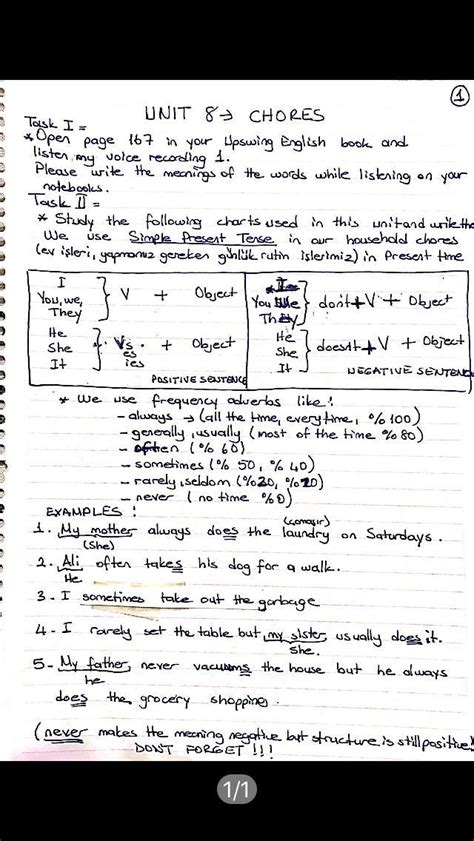 1
UNIT 8 → CHORES
Task I =
* Open page 167 in your Upswing English book and
listen my voice recording 1.
Please write the meanings of the words while listening on your
notebooks.
Task II =
* Study the following charts used in this unit and write the
We use Simple Present Tense in our household chores
(ev işleri, yapmamız gereken günlük rutin işlerimiz) in Present time
I
You, we,
They
} V + Object
He
She
It
} Vs + Object
es
ies
POSITIVE SENTENCE
I
You We
They
} don't + V + Object
He
She
It
} doesn't + V + Object
NEGATIVE SENTENCE
* We use frequency adverbs like:
- always → (all the time, everytime, %100)
- generally, usually (most of the time %80)
- often (%60)
- sometimes (%50, %40)
- rarely, seldom (%20, %10)
- never (no time %0)
EXAMPLES:
(çamaşır)
1. My mother always does the laundry on Saturdays.
(She)
2. Ali often takes his dog for a walk.
He
3- I sometimes take out the garbage
4- I rarely set the table but my sister usually does it.
She.
5- My father never vacuums the house but he always
he
does the grocery shopping.
(never makes the meaning negative but structure is still positive!
DONT FORGET !!!
1/1